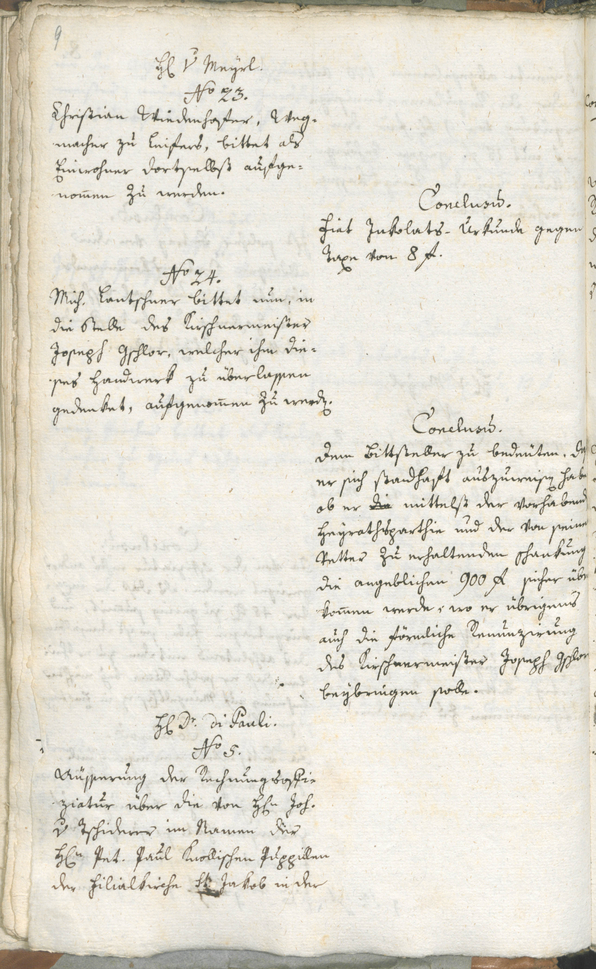 9
H v Meyrl.
No 23.
Christian Wiedenhofer, Weg-
macher zu Leifers, bittet als
Einwohner dortselbst aufge-
nommen zu werden.
Conclusum.
Fiat Inkolats-Urkunde gegen
Taxe von 8 f.
No 24.
Mich. Lantschner bittet nun, in
die Stelle des Kirschnermeister
Joseph Gschlor, welcher ihm die-
ses Handwerk zu überlassen
gedenket, aufgenommen zu werden.
Conclusum.
Dem Bittsteller zu bedeuten, da
er sich standhaft auszuweisen habe
ob er die mittelst der vorhabend
Heyrathsparthie und der von seine
Vetter zu erhaltenden Schankung
die angeblichen 900 f sicher übe
kommen werde, wo er übrigens
auch die förmliche Renunzirung
des Kirschnermeister Joseph Gschlor
beybringen solle.
H Dr. di Pauli.
No 5.
Äusserung der Rechnungsoffi-
ziatur über die von Hn Joh.
v Tschiderer im Namen der
Hn Pet. Paul Knollischen Puppillen
der Filialkirche St Jakob in der